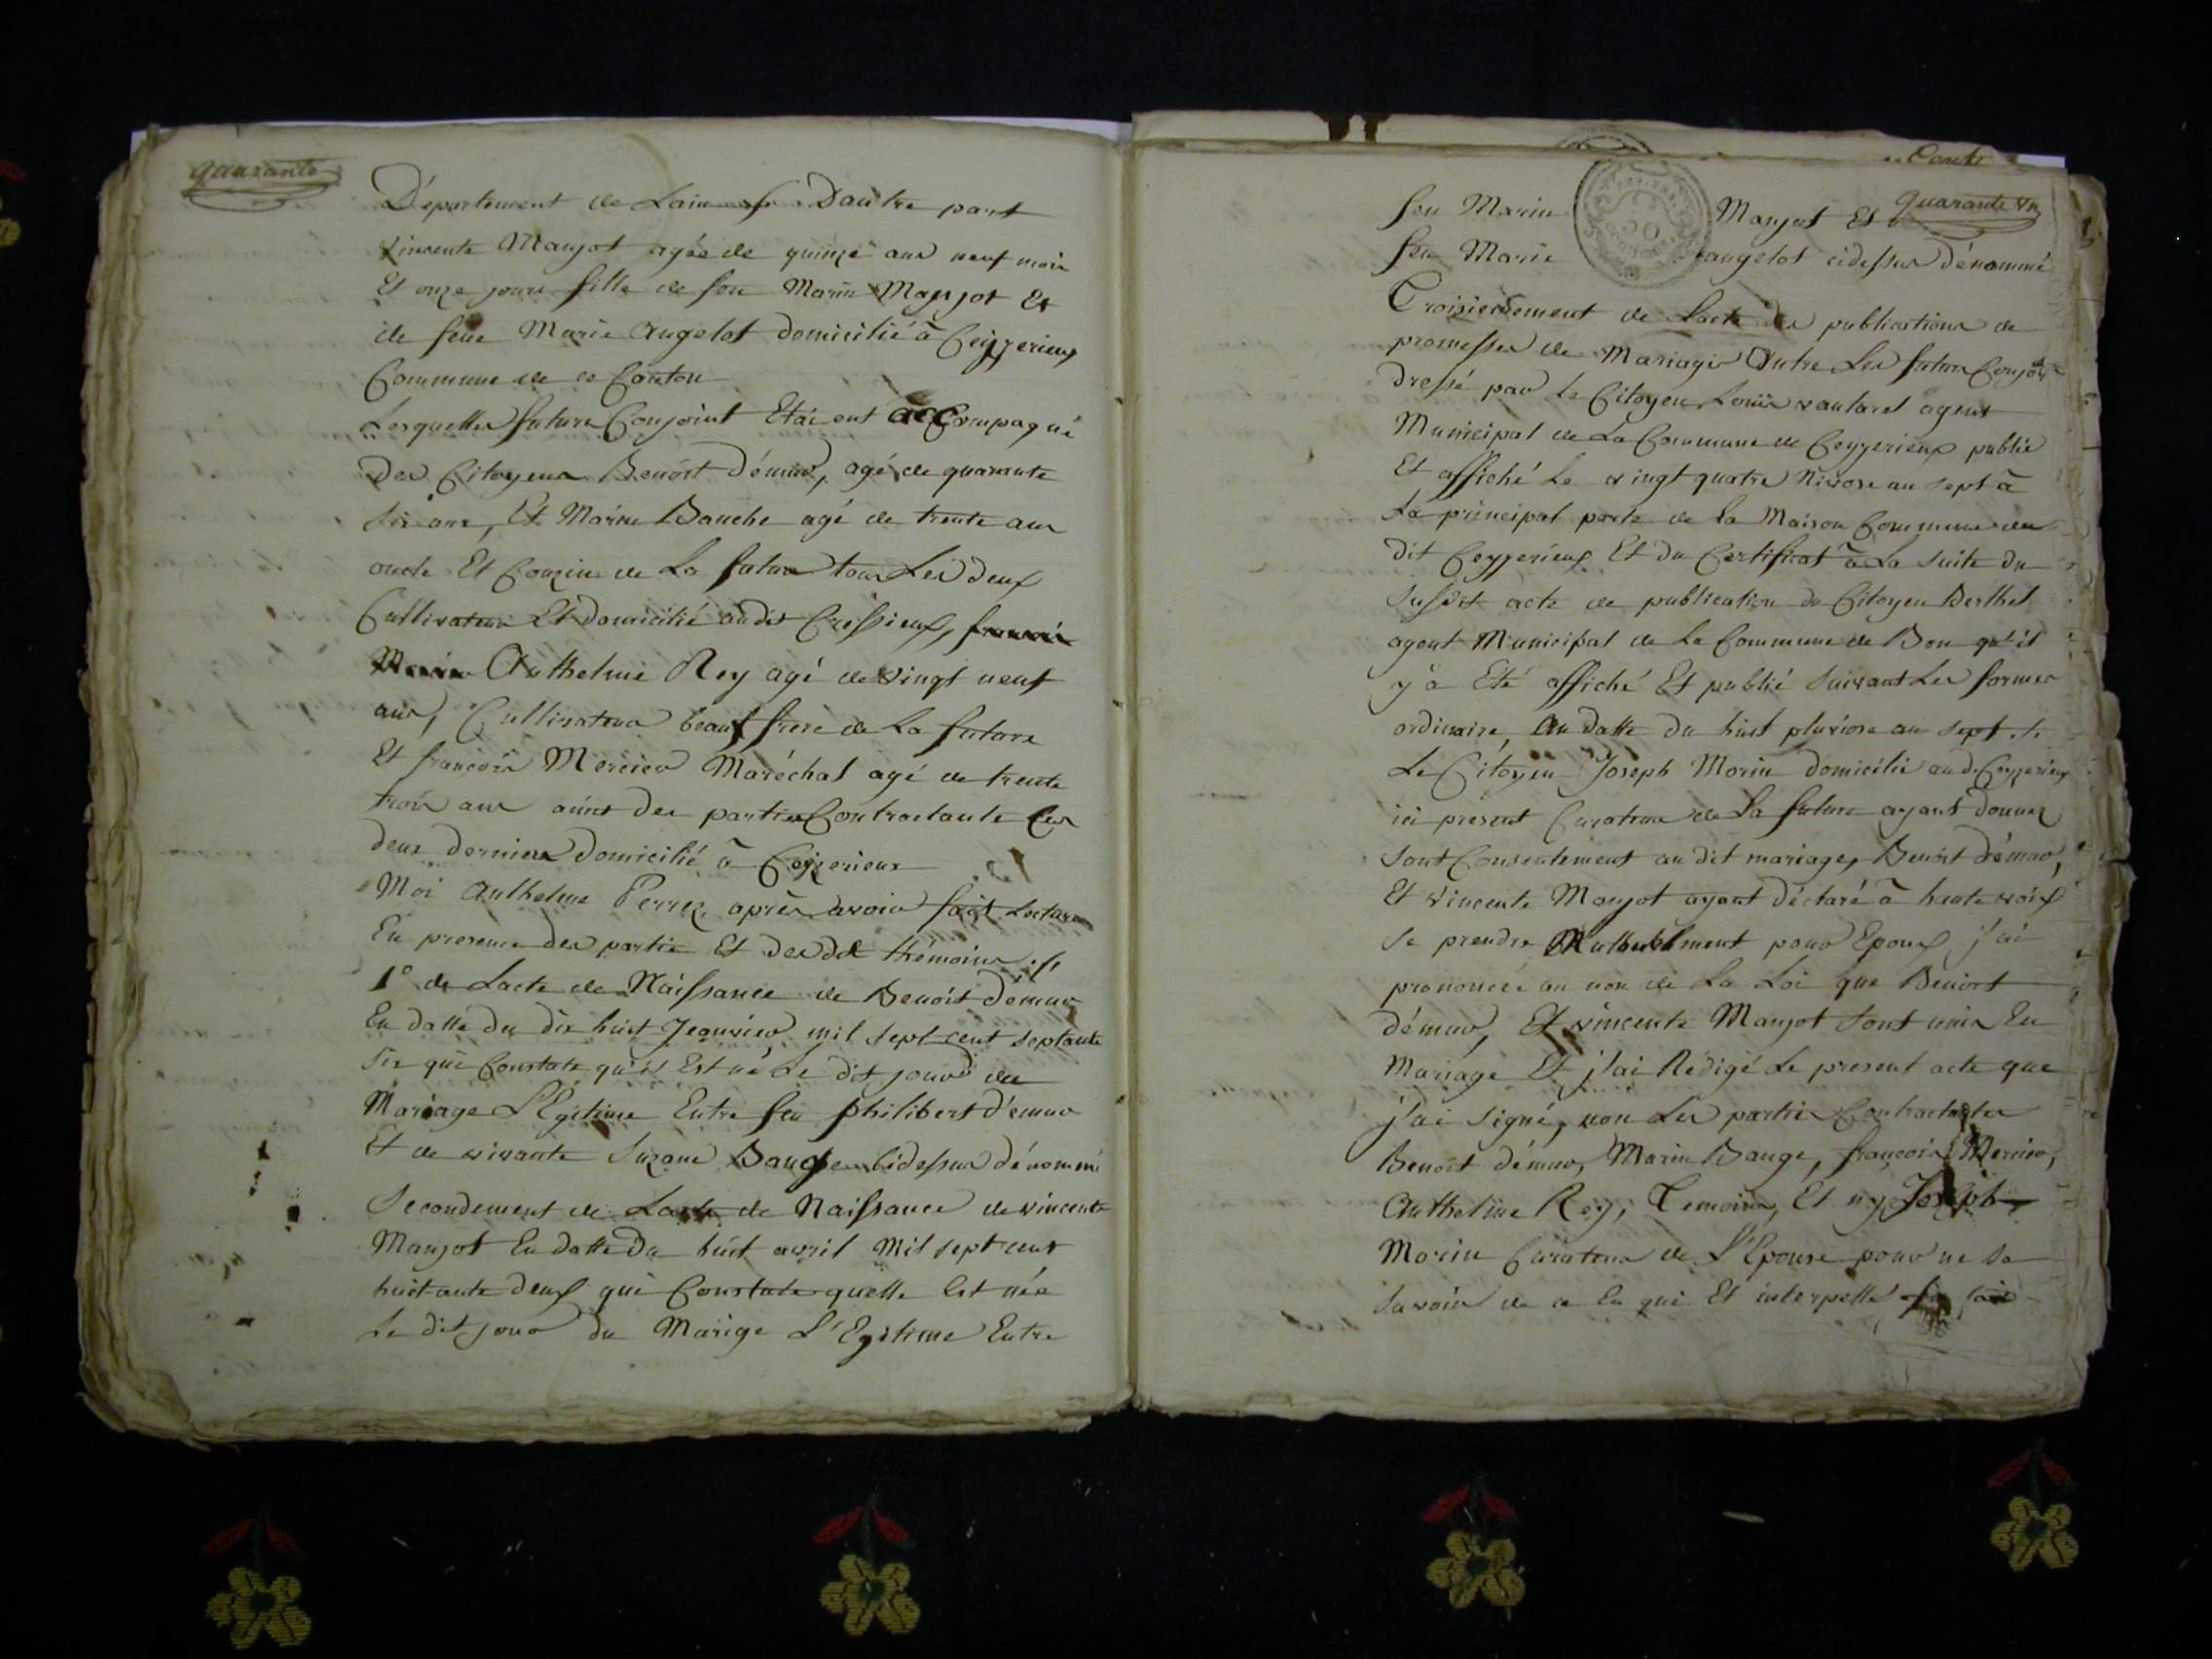 quarante
Département de Lain Dautre part
vincente Manjot agée de quinze ans neuf mois
Et onze jours fille de feu Marin Manjot Et
de feue Marie Angelot domicilié à Ceyzerieux
Commune de ce Canton
Lesquelles futurs Conjoint Etaient accompagné
des Citoyens Benoist démur, agé de quarante
six ans, Et Marin Bauche agé de trente ans
oncle Et Couzin de La future tous Les deux
Cultivateur Et domicilié audit Cressieux,
Anthelme Rey agé de vingt neuf
ans, Cultivateur beauf frère de La future
Et françois Mercier Maréchal agé de trente
trois ans amis des parties Contractante Les
deux derniers domicilié à Ceyzerieux
Moi Anthelme Perrez après avoir fait Lecture
En presence des partie Et des dit thémoins
1° de Lacte de Naissance de Benoist démur
En datte du dix huit Jeanvier mil sept cent septante
six qui Constate qu'il Est né Le dit jour du
Mariage L'Egitime Entre feu philibert démur
Et de vivante Suzane Bauge cidessus dénommé
Secondement de Lacte de Naissance de vincente
Manjot En datte du huit avril Mil sept cent
huitante deux qui Constate quelle Est née
Le dit jour du Marige L'Egitime Entre
Cent
quarante un
feu Marin Manjot Et
feu Marie angelot cidessus dénommé
50
Troisiemement de Lacte des publications de
promesses de Mariage Entre Les futurs Conjoint
dressé par Le Citoyen Louis vautaret agent
Municipal de La Commune de Ceyzerieux publié
Et affiché Le vingt quatre Nivose an sept à
La principal porte de la Maison Commune du
dit Ceyzerieux Et du Certificat à La suite du
susdit acte de publication du Citoyen Berthet
agent Municipal de La Commune de Bon qu'il
y a Eté affiché Et publié suivant Les formes
ordinaire, En datte du huit pluviose an sept
Le Citoyen Joseph Morin domicilié aud. Ceyzerieux
ici présent Curateur de La future ayant donnez
sont Consentement au dit mariage, Benoist démur,
Et vincente Manjot ayant déclaré à haute voix
se prendre Mutuelment pour Epoux j'ai
prononcée au non de La Loi que Benoist
démur, Et vincente Manjot sont unis En
Mariage Et j'ai Rédigé Le present acte que
j'ai signé, non Les parties Contractantes
Benoist démur, Marin Bauge, françois Mercier,
Anthelme Rey, Temoins, Et ny Joseph
Morin Curateur de L'Epouse pour ne Le
savoir de ce En qui Et interpellé